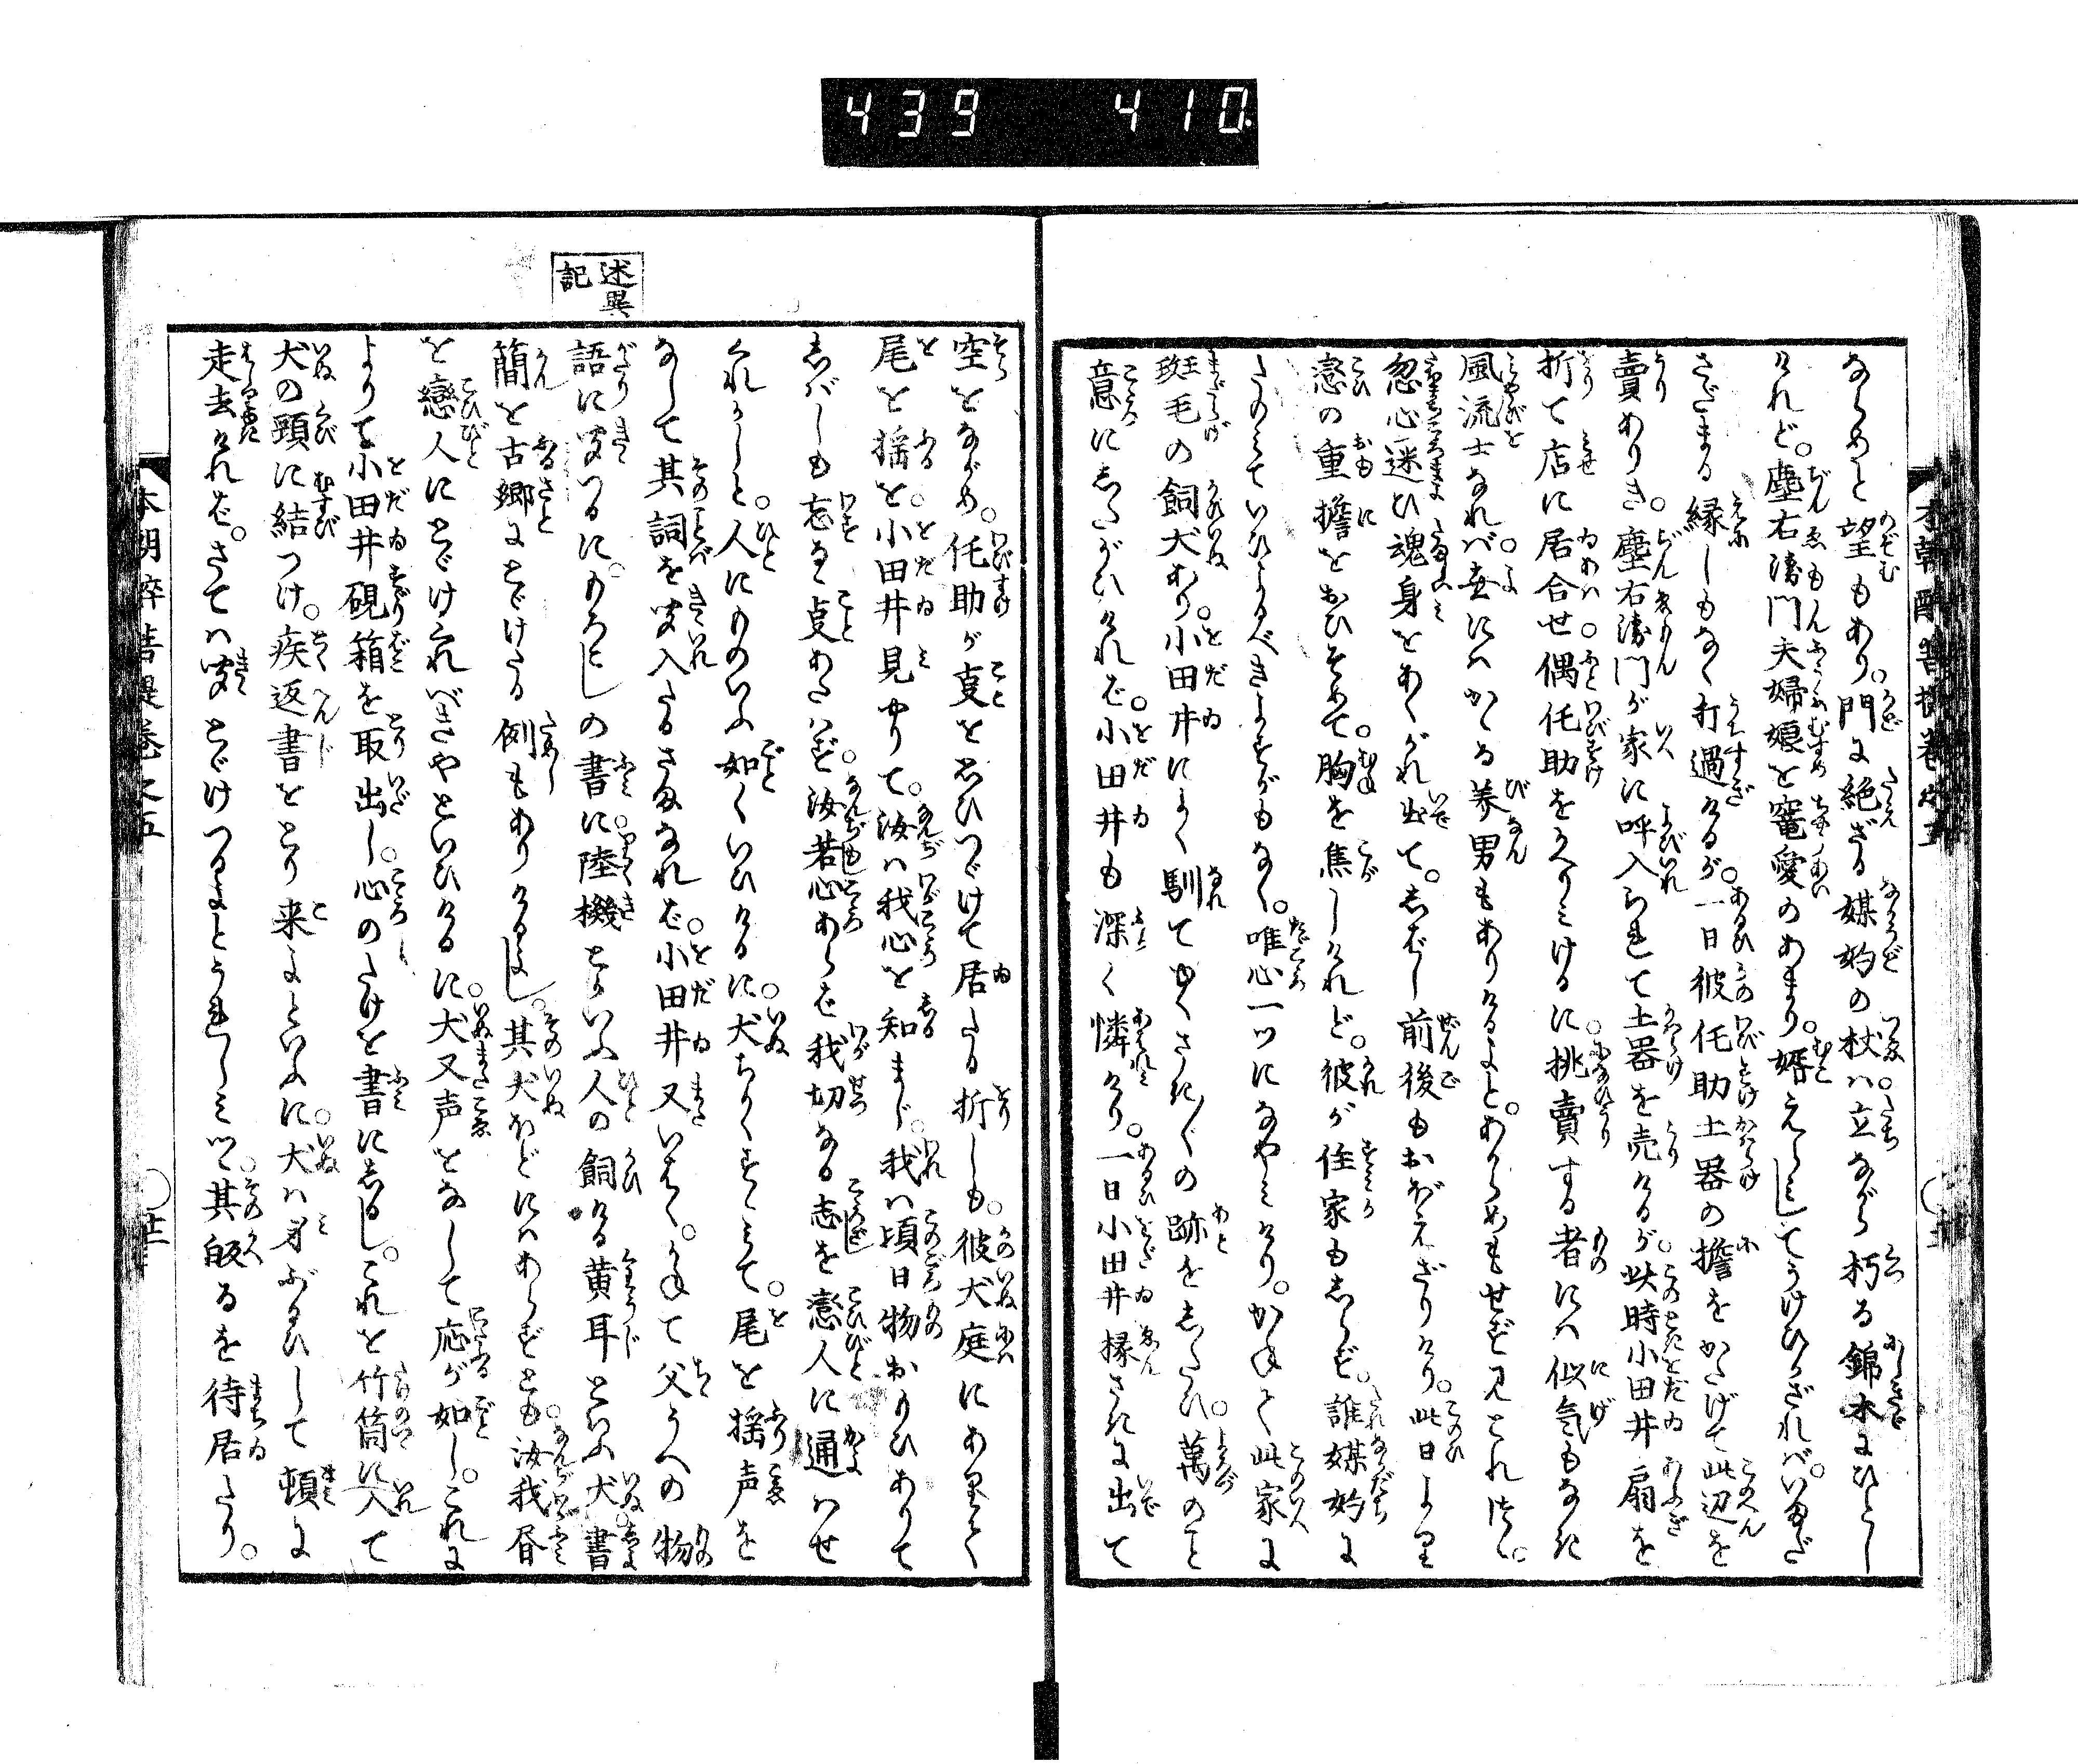 439 410.
本朝酔菩提巻之五
ならめと望もあり。門に絶ざる媒妁の杖ハ立ながら朽る錦木にひとし
けれど。塵右衛門夫婦娘を寵愛のあまり。婿えらみしてうけひかざれバ。いまだ
さだまる縁しもなく打過けるが。一日彼侘助土器の擔をかたげて此辺を
賣ありき。塵右衛門が家に呼入られて土器を売けるが。此時小田井扇を
折て店に居合せ偶侘助をかへりミけるに挑賣する者にハ似気もなき
風流士なれバ世にハかゝる美男もありけるよと。あからめもせず見とれ
忽心迷ひ魂身をあくがれ出て。しばし前後もおぼえざりけり。此日より
戀の重擔をおひそめて。胸を焦しけれど。彼が住家もしらず。誰媒妁に
たのミていひよるべきよすがもなく。唯心一ツになやミけり。かねてより此家に
斑毛の飼犬あり。小田井によく馴てゆくさき〲の跡をしたひ。萬のこと
意にしたがひけれバ。小田井も深く憐けり。一日小田井縁さきに出て
空をながめ。侘助が支をおもひつゞけて居たる折しも。彼犬庭にありて
尾を揺を小田井見やりて。汝ハ我心を知まじ。我ハ頃日物おもひありて
しバしも忘るゝ支あたハず。汝若心あらバ我切なる志を戀人に通ハせ
くれかしと。人にものいふ如くいひけるに。犬ちかくすゝミて。尾を揺声を
なして其詞を聞入たるさまなれバ。小田井又いはく。かねて父うへの物
述異記
語に聞つるに。もろこしの書に。陸機といふ人の飼ける黄耳といふ犬。書
簡を古郷にとゞけたる例もありけるよし。其犬ほどにハあらずとも。汝我昏
を戀人にとゞけくれべきやといひけるに。犬又声をなして応が如し。これに
よりて小田井硯箱を取出し。心のたけを書にしるし。これを竹筒に入て
犬の頸に結つけ。疾返書をとり来よといふに。犬ハ身ぶるひして頓に
走去けれバ。さてハ聞とゞけつるよとうれしミツ。其皈るを待居たり。
本朝酔菩提巻之五